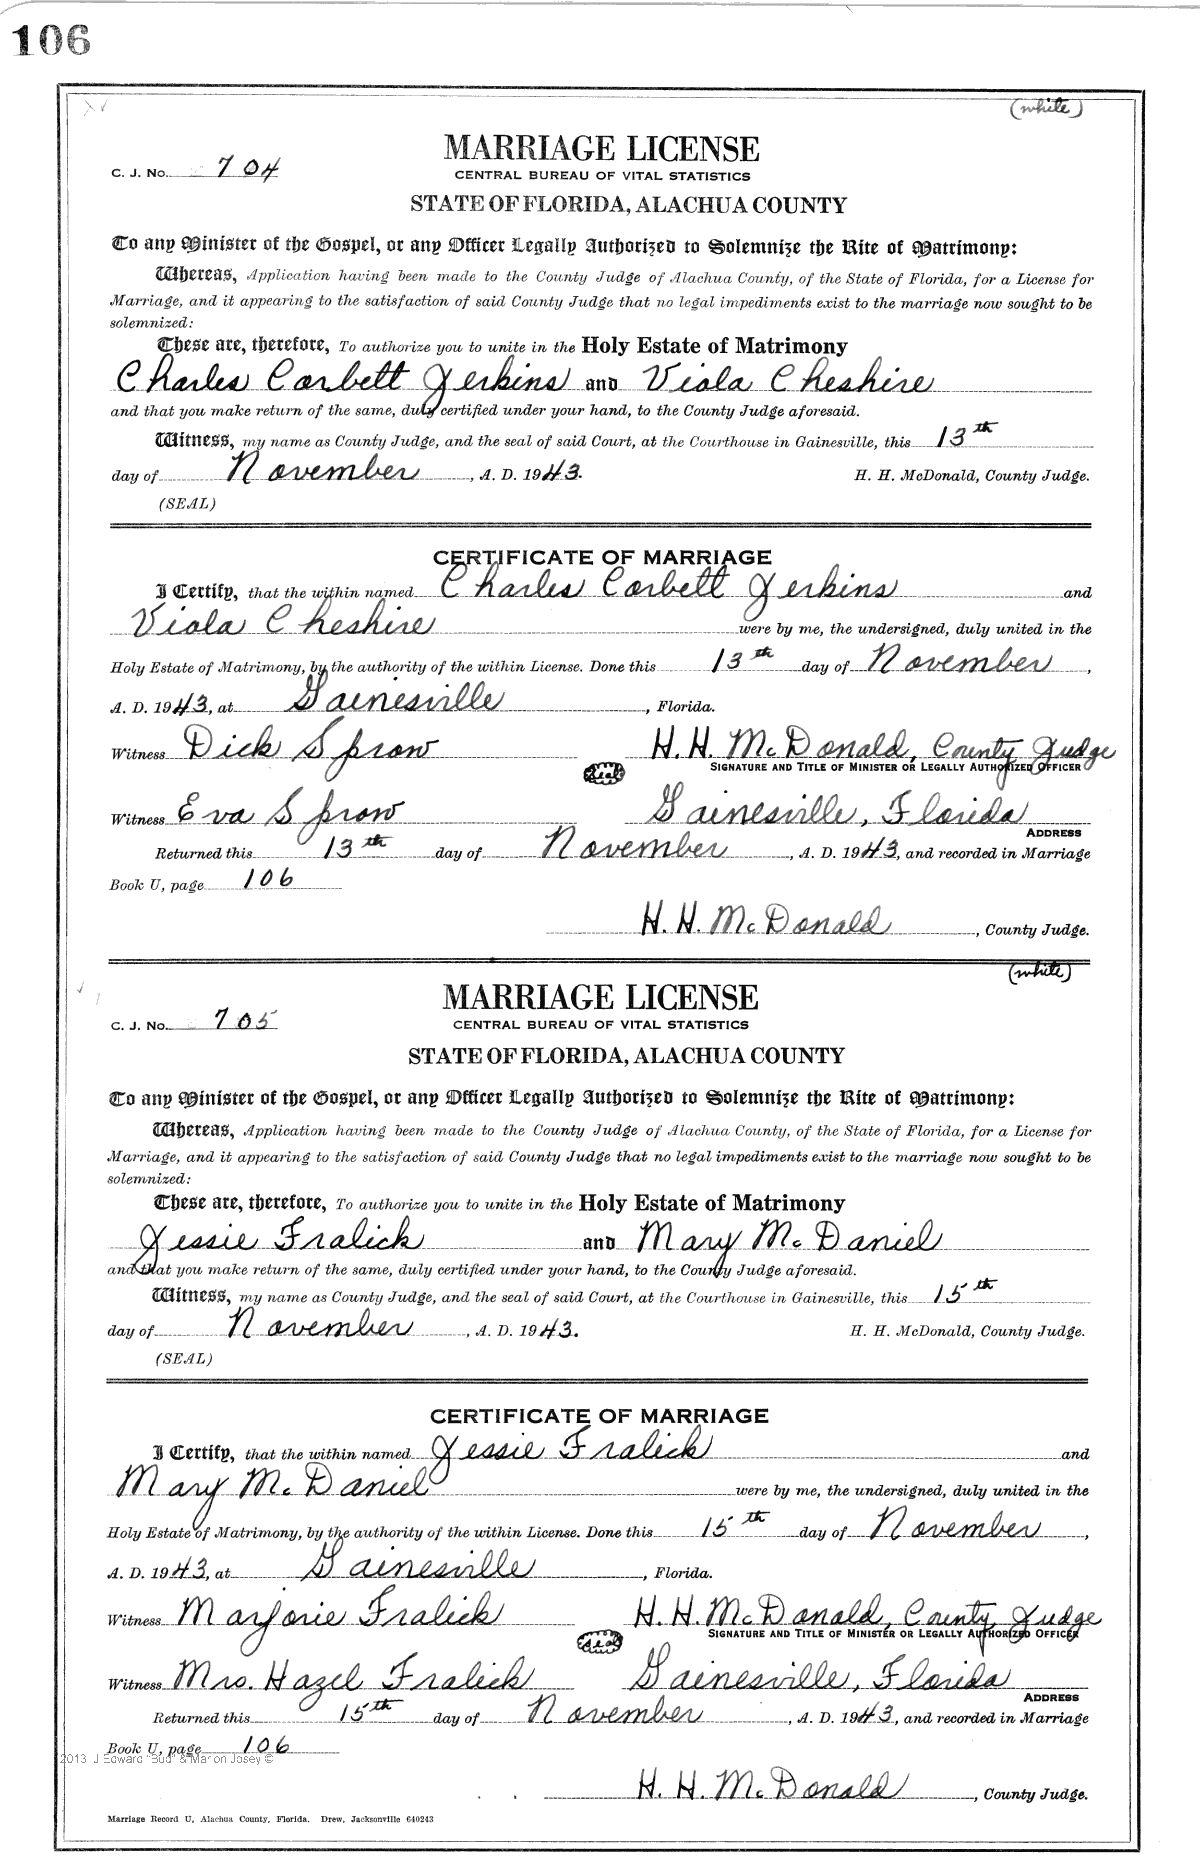 106
(white)
MARRIAGE LICENSE
C. J. No. 704
CENTRAL BUREAU OF VITAL STATISTICS
STATE OF FLORIDA, ALACHUA COUNTY
To any Minister of the Gospel, or any Officer Legally Authorized to Solemnize the Rite of Matrimony:
Whereas, Application having been made to the County Judge of Alachua County, of the State of Florida, for a License for
Marriage, and it appearing to the satisfaction of said County Judge that no legal impediments exist to the marriage now sought to be
solemnized:
These are, therefore, To authorize you to unite in the Holy Estate of Matrimony
Charles Corbett Jerkins and Viola Cheshire
and that you make return of the same, duly certified under your hand, to the County Judge aforesaid.
Witness, my name as County Judge, and the seal of said Court, at the Courthouse in Gainesville, this 13th
day of November, A. D. 1943. H. H. McDonald, County Judge.
(SEAL)
CERTIFICATE OF MARRIAGE
I Certify, that the within named Charles Corbett Jerkins and
Viola Cheshire were by me, the undersigned, duly united in the
Holy Estate of Matrimony, by the authority of the within License. Done this 13th day of November,
A. D. 1943, at Gainesville, Florida.
Witness Dick Sprow H. H. McDonald, County Judge
Seal SIGNATURE AND TITLE OF MINISTER OR LEGALLY AUTHORIZED OFFICER
Witness Eva Sprow Gainesville, Florida
ADDRESS
Returned this 13th day of November, A. D. 1943, and recorded in Marriage
Book U, page 106
H. H. McDonald, County Judge.
(white)
MARRIAGE LICENSE
C. J. No. 705
CENTRAL BUREAU OF VITAL STATISTICS
STATE OF FLORIDA, ALACHUA COUNTY
To any Minister of the Gospel, or any Officer Legally Authorized to Solemnize the Rite of Matrimony:
Whereas, Application having been made to the County Judge of Alachua County, of the State of Florida, for a License for
Marriage, and it appearing to the satisfaction of said County Judge that no legal impediments exist to the marriage now sought to be
solemnized:
These are, therefore, To authorize you to unite in the Holy Estate of Matrimony
Jessie Fralick and Mary McDaniel
and that you make return of the same, duly certified under your hand, to the County Judge aforesaid.
Witness, my name as County Judge, and the seal of said Court, at the Courthouse in Gainesville, this 15th
day of November, A. D. 1943. H. H. McDonald, County Judge.
(SEAL)
CERTIFICATE OF MARRIAGE
I Certify, that the within named Jessie Fralick and
Mary McDaniel were by me, the undersigned, duly united in the
Holy Estate of Matrimony, by the authority of the within License. Done this 15th day of November,
A. D. 1943, at Gainesville, Florida.
Witness Marjorie Fralick H. H. McDonald, County Judge
Seal SIGNATURE AND TITLE OF MINISTER OR LEGALLY AUTHORIZED OFFICER
Witness Mrs. Hazel Fralick Gainesville, Florida
ADDRESS
Returned this 15th day of November, A. D. 1943, and recorded in Marriage
Book U, page 106
2013 J Edward "Bud" & Marion Josey ©
H. H. McDonald, County Judge.
Marriage Record U, Alachua County, Florida. Drew, Jacksonville 640243